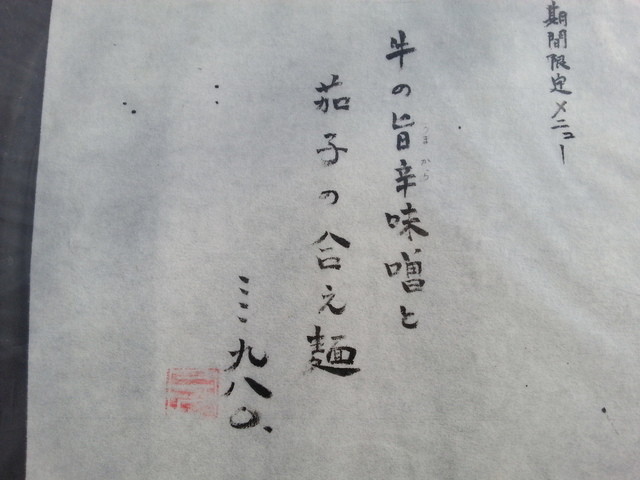 期間限定メニュー
牛の旨辛味噌と
うまから
茄子の合え麺
九八〇、